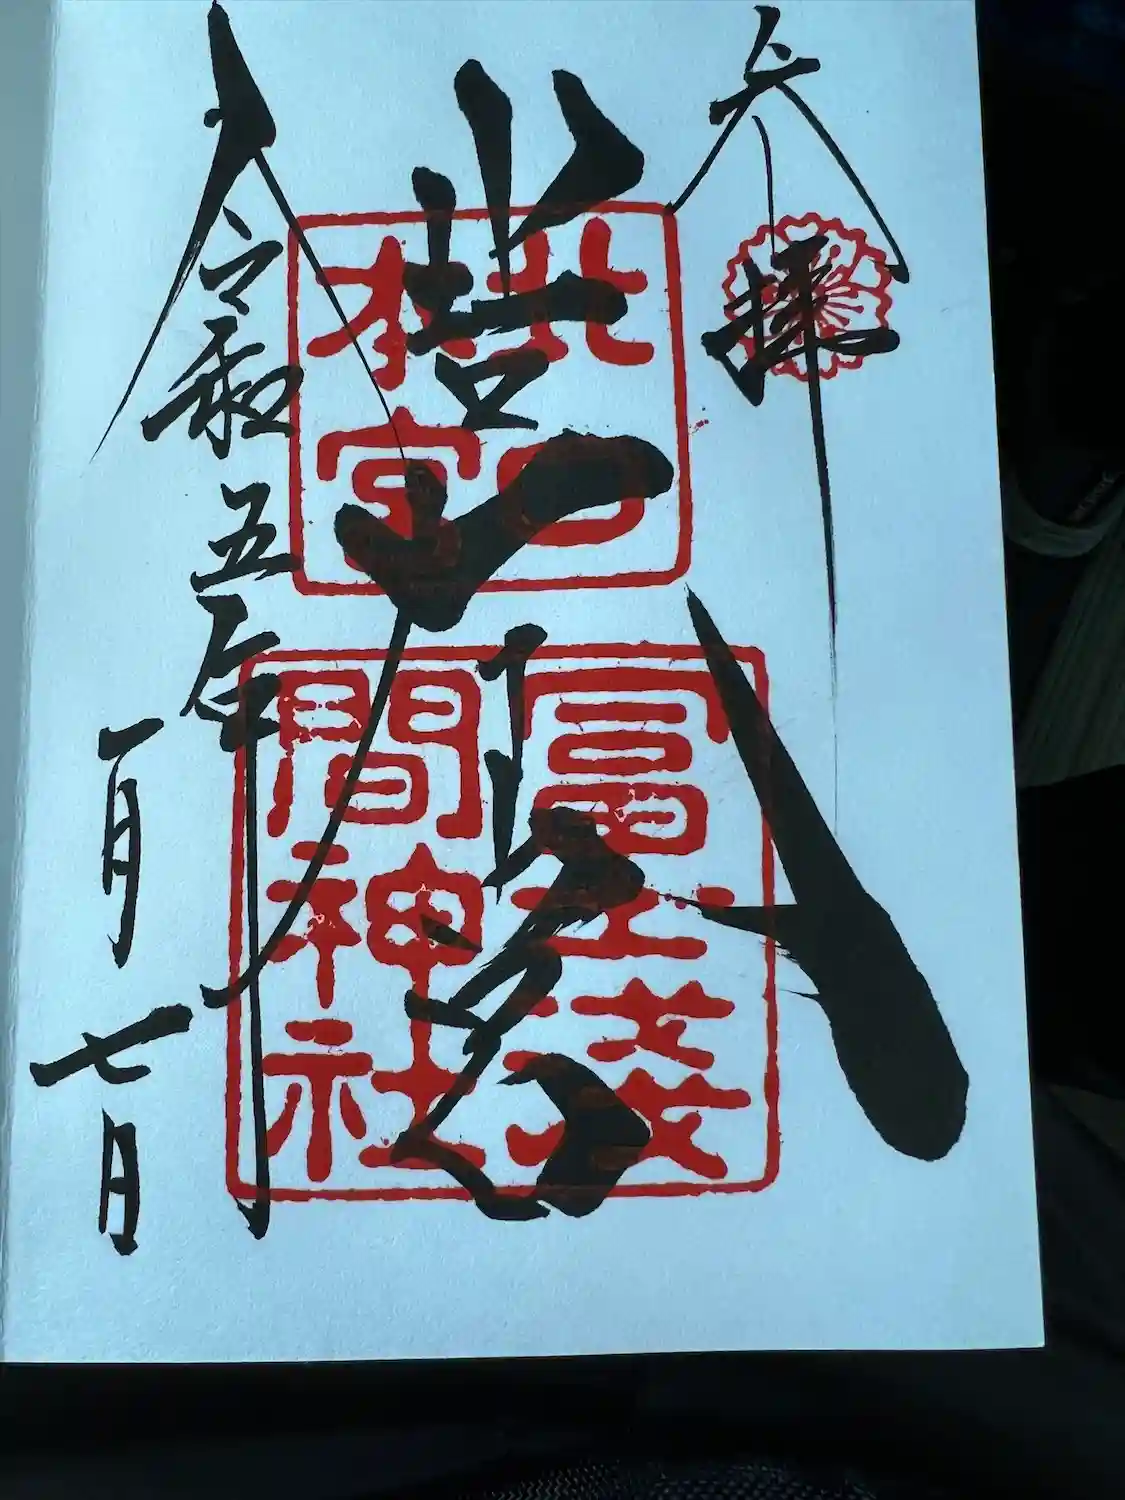 奉拝
北口本宮
令和五年
一月七日
北口
本宮
冨士淺
間神社